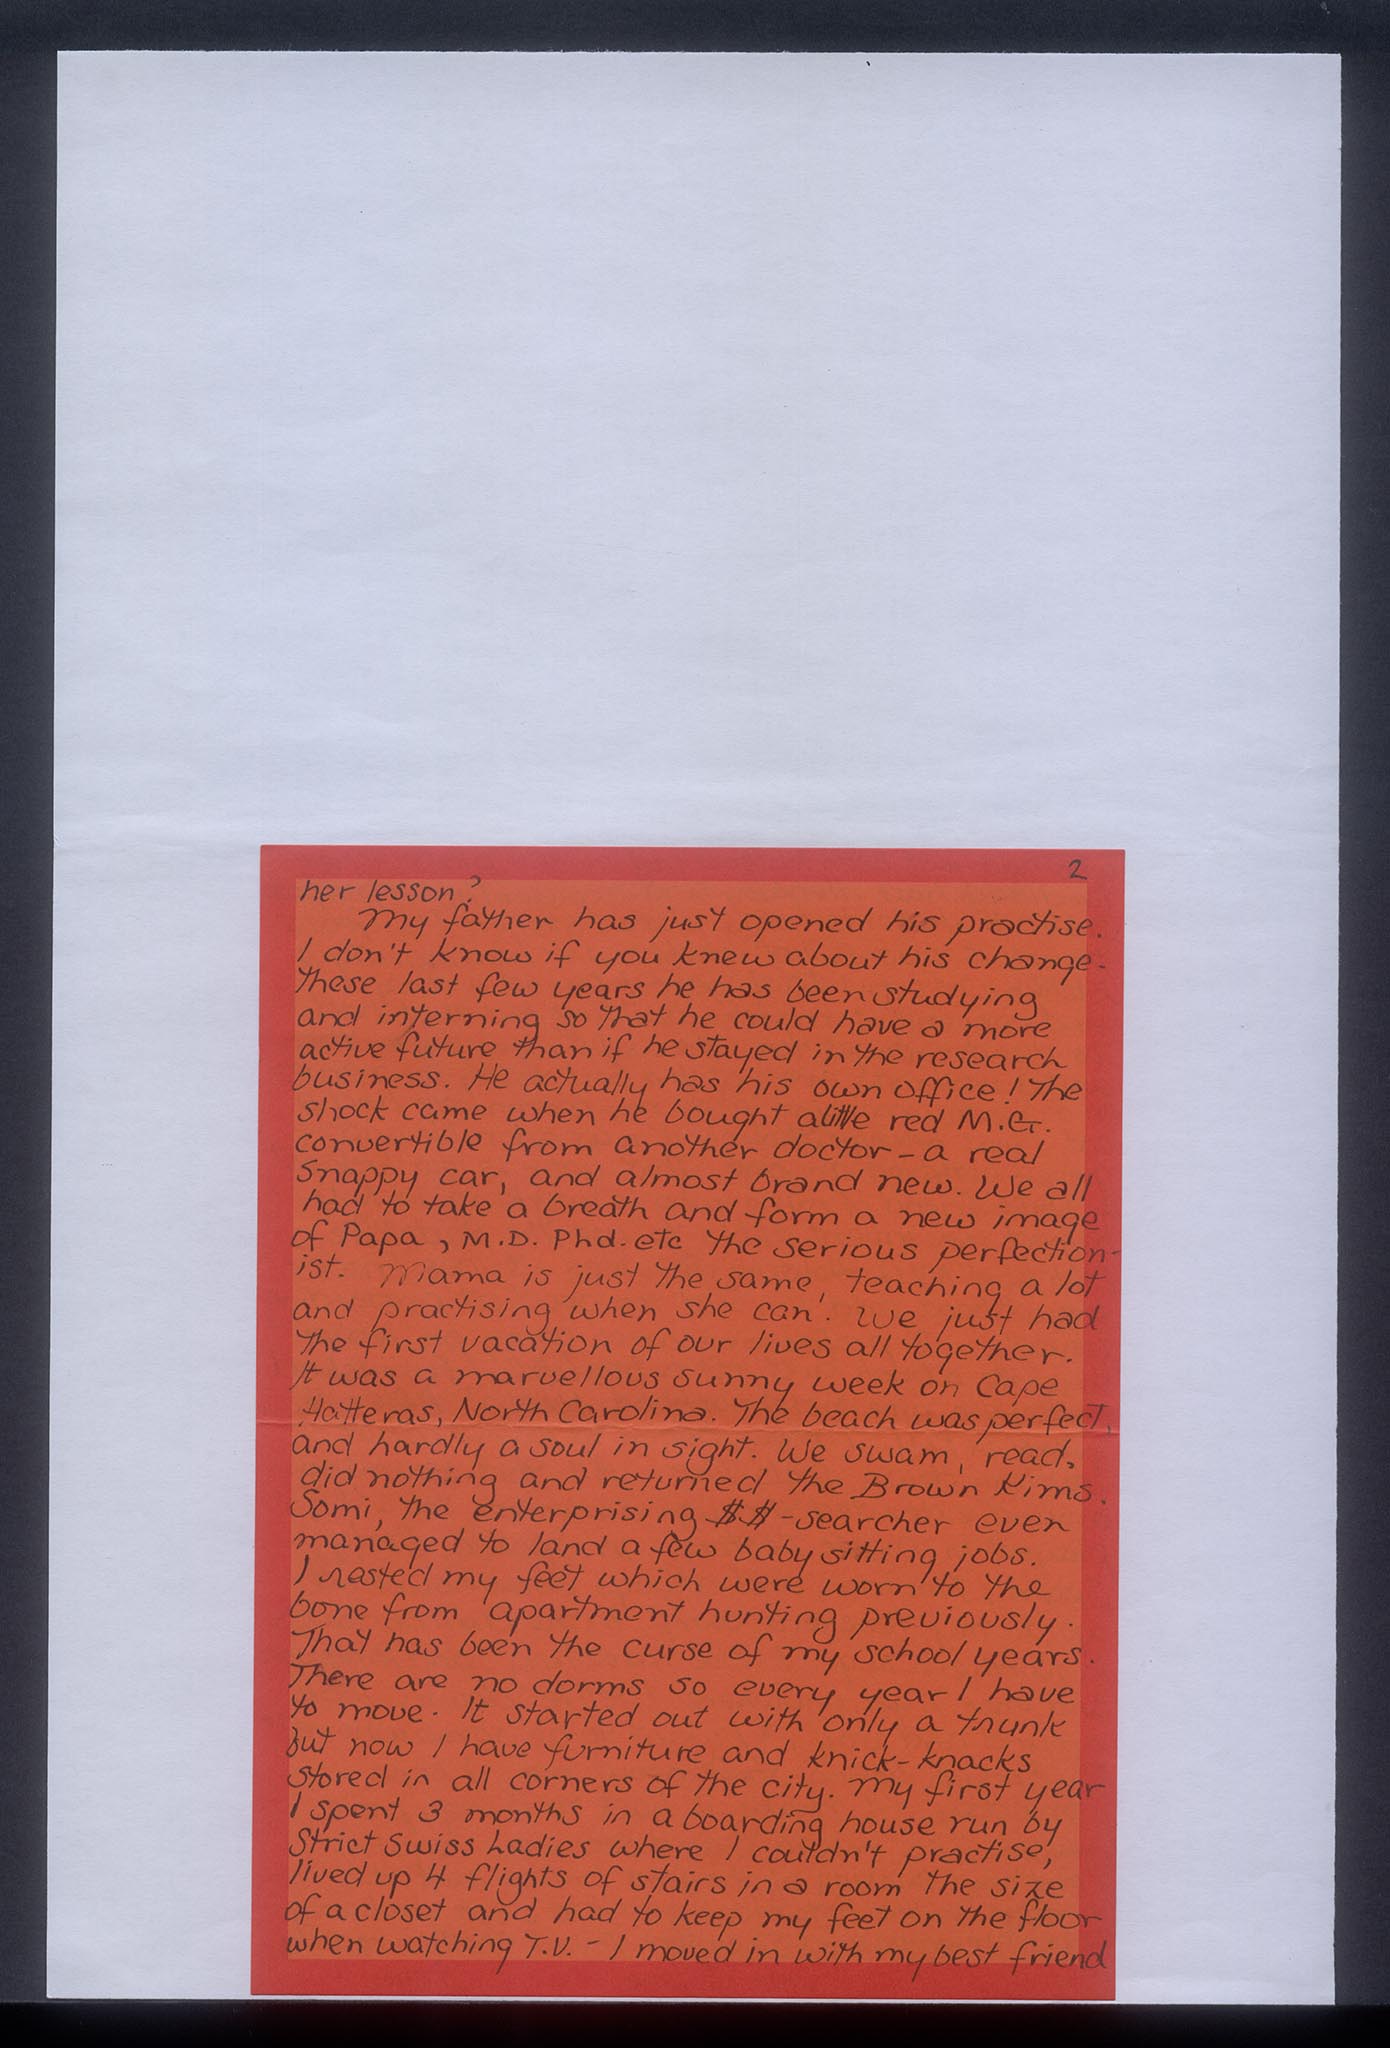 2
her lesson?
My father has just opened his practise.
I don't know if you knew about his change-
these last few years he has been studying
and interning so that he could have a more
active future than if he stayed in the research
business. He actually has his own office! The
shock came when he bought a little red M.G.
convertible from another doctor - a real
snappy car, and almost brand new. We all
had to take a breath and form a new image
of Papa, M.D. Phd. etc the serious perfection-
ist. Mama is just the same, teaching a lot
and practising when she can. We just had
the first vacation of our lives all together.
It was a marvellous sunny week on Cape
Hatteras, North Carolina. The beach was perfect,
and hardly a soul in sight. We swam, read,
did nothing and returned the Brown Kims.
Somi, the enterprising $$-searcher even
managed to land a few baby sitting jobs.
I rested my feet which were worn to the
bone from apartment hunting previously.
That has been the curse of my school years.
There are no dorms so every year I have
to move. It started out with only a trunk
but now I have furniture and knick-knacks
stored in all corners of the city. My first year
I spent 3 months in a boarding house run by
Strict Swiss Ladies where I couldn't practise,
lived up 4 flights of stairs in a room the size
of a closet and had to keep my feet on the floor
when watching T.V. - I moved in with my best friend